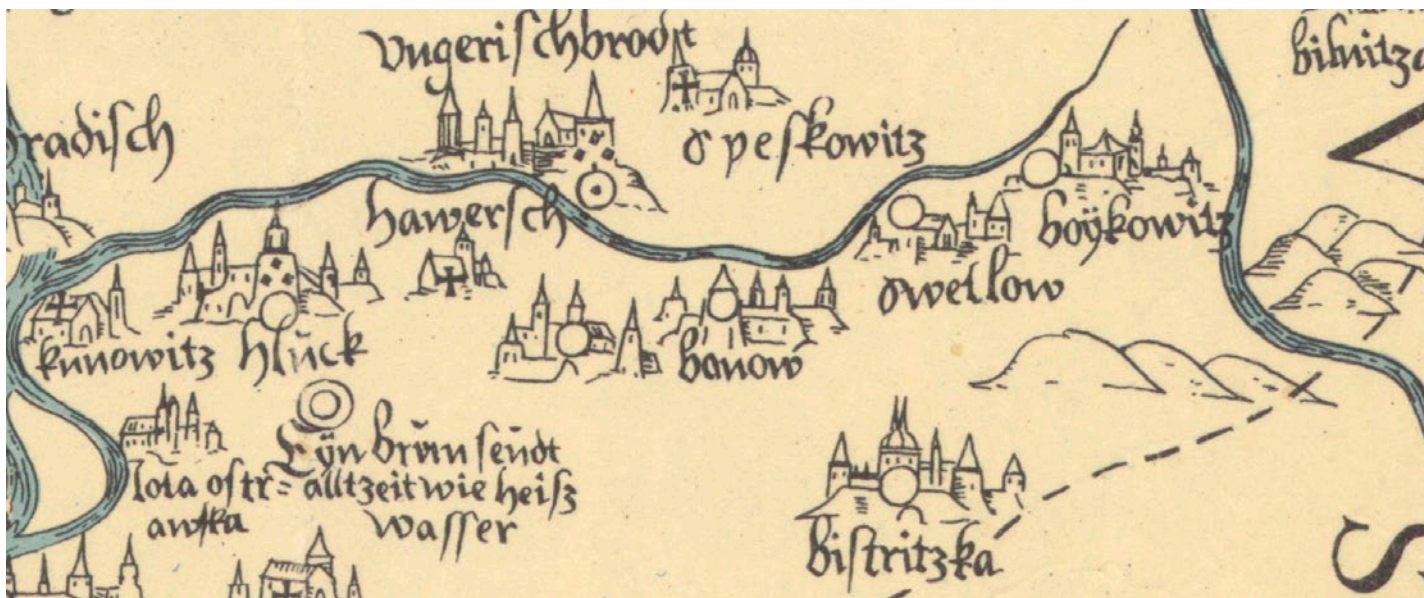 vngerischbrodt
bilnitza
radisch
speskowitz
hawersch
boÿkowitz
swetlow
kunowitz
hlück
banow
Eÿn brun seudt
alltzeit wie heisz
wasser
lota ostr=
awska
bistritzka
S